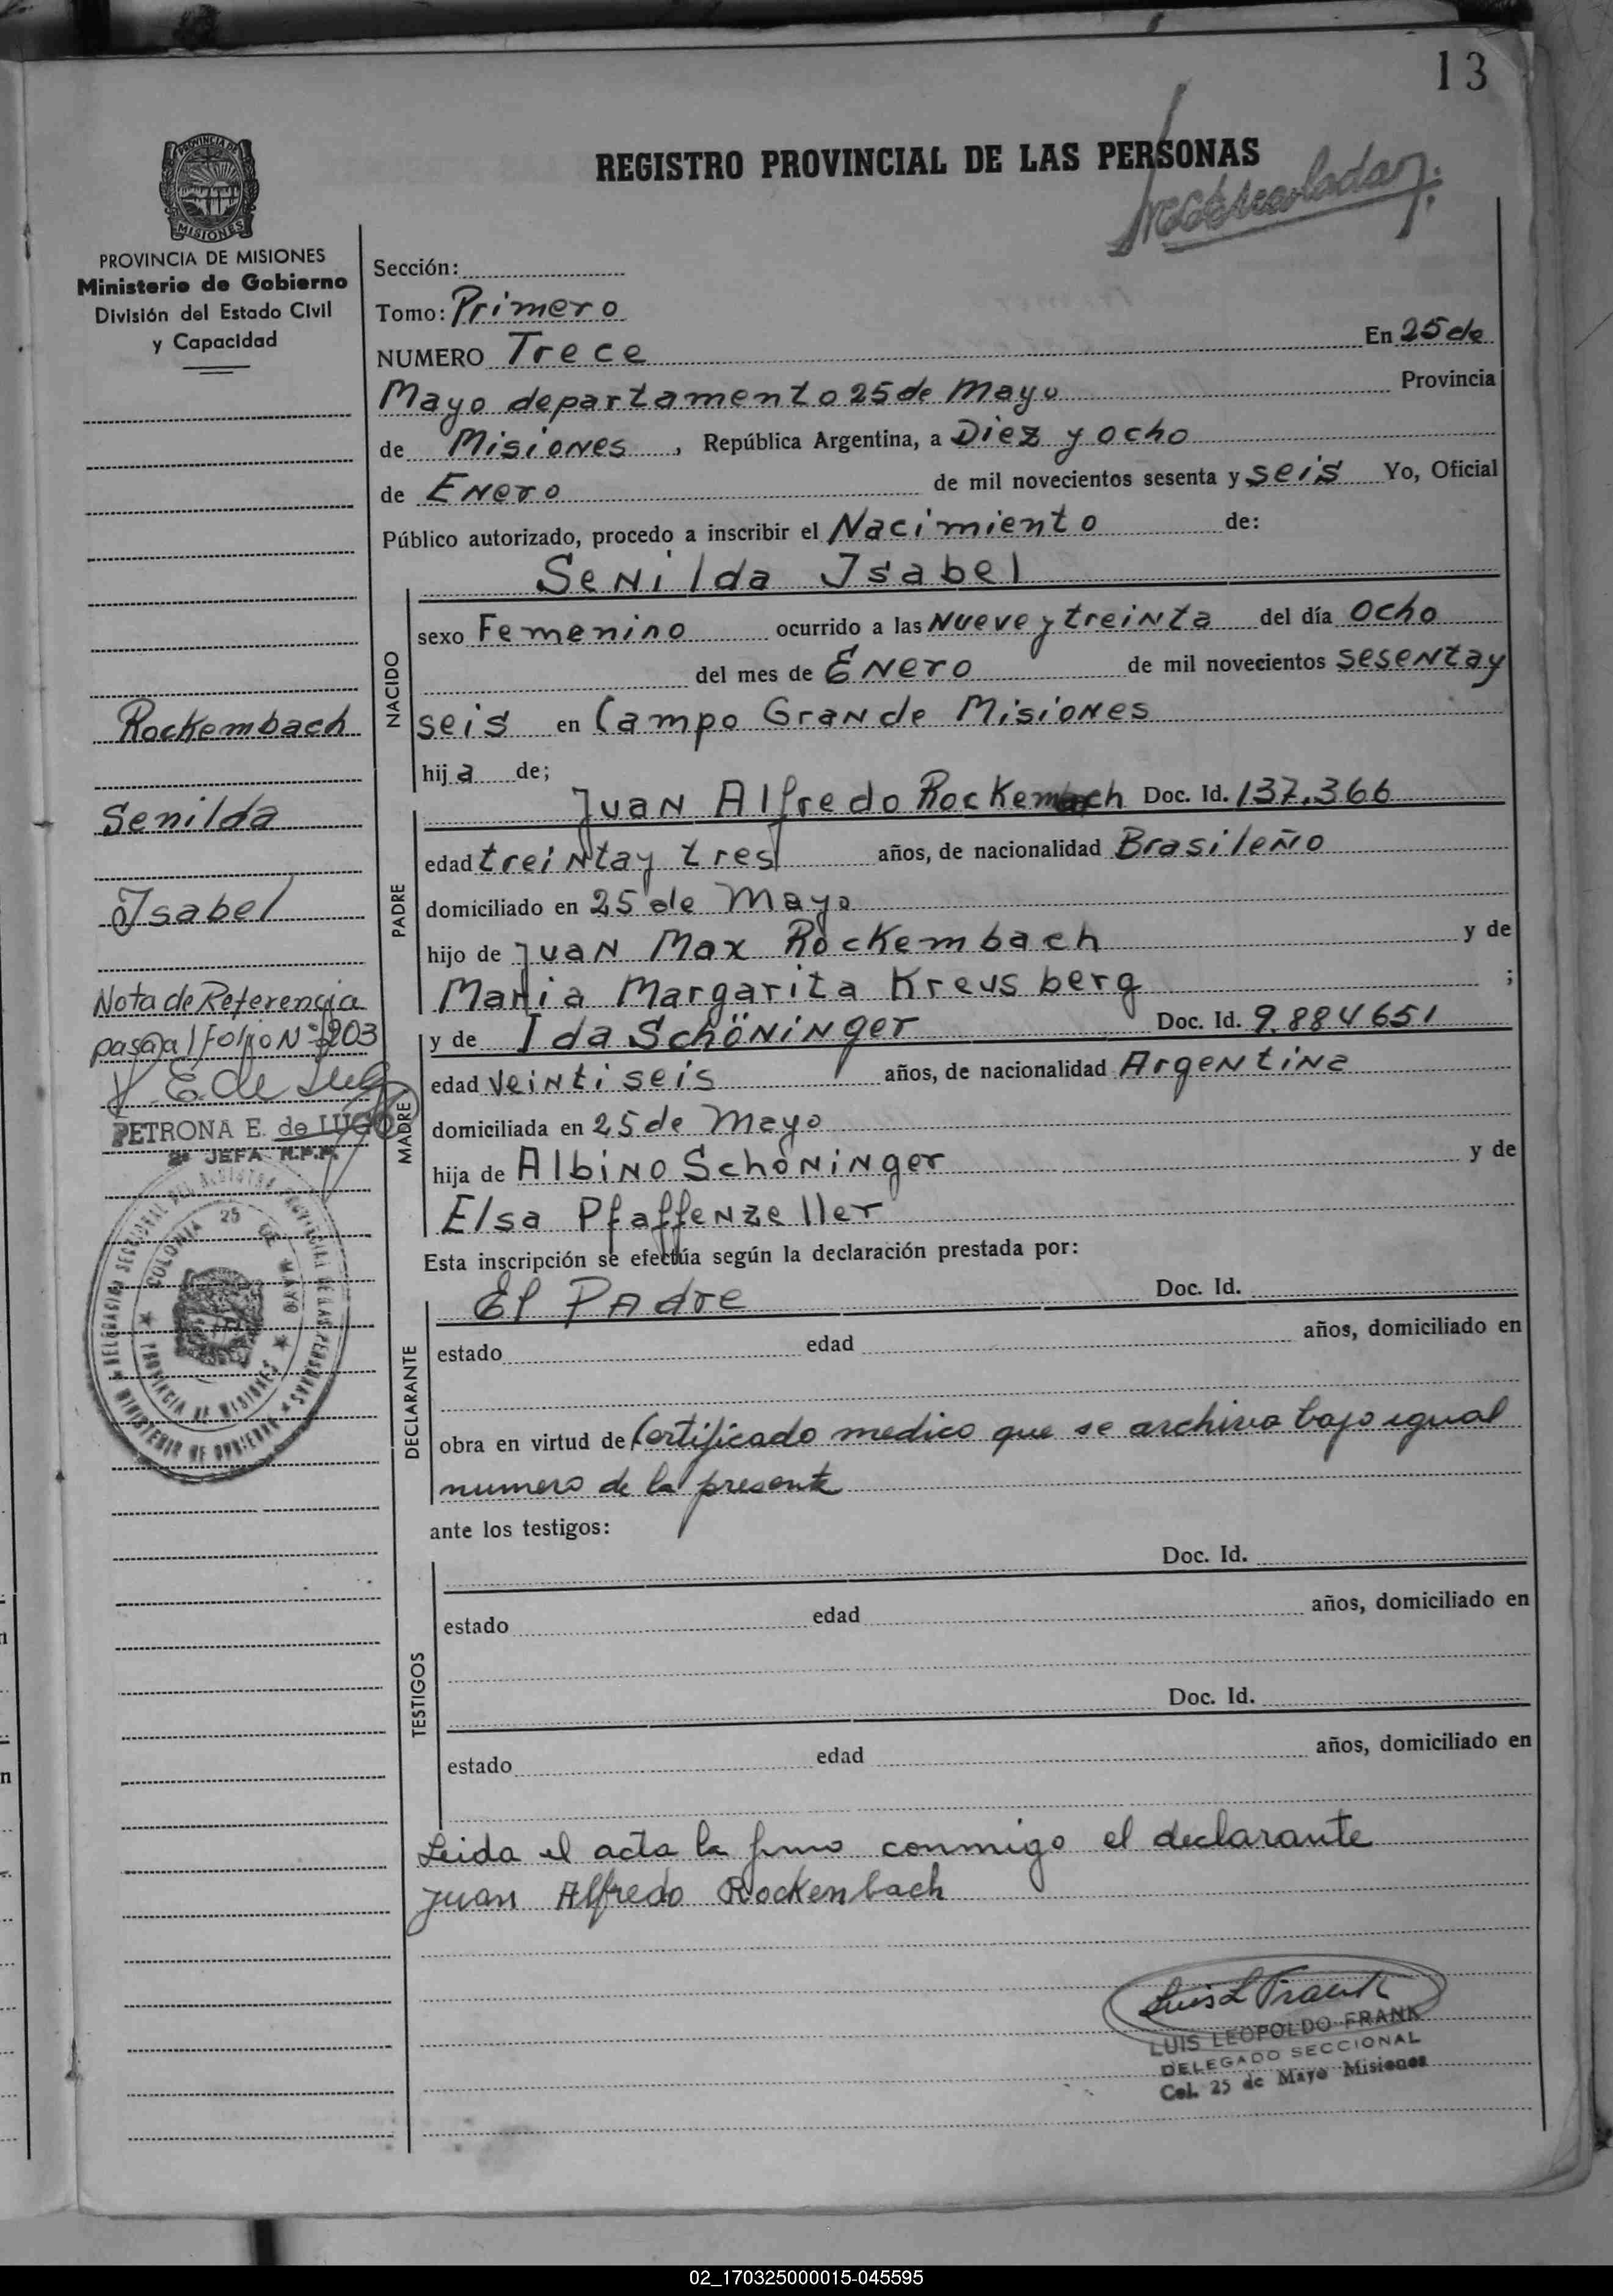 13
REGISTRO PROVINCIAL DE LAS PERSONAS
PROVINCIA DE MISIONES
Ministerio de Gobierno
División del Estado Civil
y Capacidad
Sección:
Tomo: Primero
NUMERO Trece En 25 de
Mayo departamento 25 de Mayo Provincia
de Misiones, República Argentina, a Diez y ocho
de Enero de mil novecientos sesenta y seis Yo, Oficial
Público autorizado, procedo a inscribir el Nacimiento de:
NACIDO
Senilda Isabel
sexo Femenino ocurrido a las Nueve y treinta del día ocho
del mes de Enero de mil novecientos sesenta y
seis en Campo Grande Misiones
hija de;
PADRE
Juan Alfredo Rockembach Doc. Id. 137.366
edad treinta y tres años, de nacionalidad Brasileño
domiciliado en 25 de Mayo
hijo de Juan Max Rockembach y de
Maria Margarita Kreusberg ;
MADRE
y de Ida Schöninger Doc. Id. 9.884651
edad veintiseis años, de nacionalidad Argentina
domiciliada en 25 de Mayo
hija de Albino Schöninger y de
Elsa Pfaffenzeller
Esta inscripción se efectúa según la declaración prestada por:
DECLARANTE
El Padre Doc. Id.
estado edad años, domiciliado en
obra en virtud de Certificado medico que se archiva bajo igual
numero de la presente
ante los testigos:
TESTIGOS
Doc. Id.
estado edad años, domiciliado en
Doc. Id.
estado edad años, domiciliado en
Leida el acta la firmo conmigo el declarante
Juan Alfredo Rockenbach
LUIS LEOPOLDO FRANK
DELEGADO SECCIONAL
Col. 25 de Mayo Misiones
Rockembach
Senilda
Isabel
Nota de Referencia
pasa al Folio Nº 203
PETRONA E. de LUGO
2ª JEFA R.P.P.
COLONIA 25 DE MAYO
PROVINCIA DE MISIONES
MINISTERIO DE GOBIERNO
02_170325000015-045595